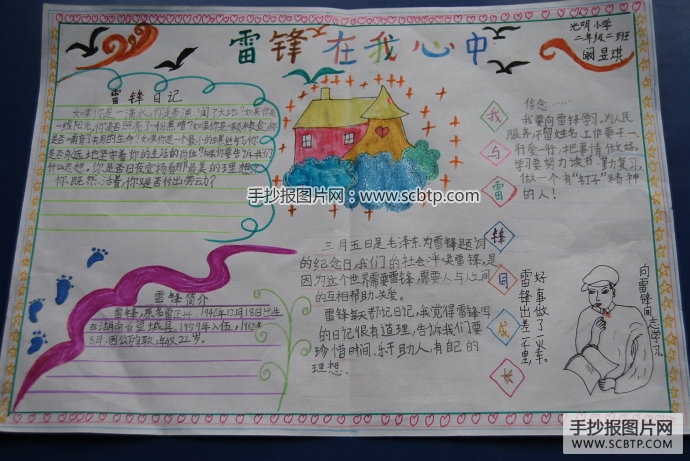 雷锋在我心中
光明小学
二年级二班
阚昱琪
雷锋日记
如果你是一滴水,你是否滋润了大地?如果你是
一线阳光,你是否照亮了一份黑暗?如果你是一颗粮食,你
是否哺育了有用的生命?如果你是一个最小的螺丝钉,你
是否永远地坚守着你的生活的岗位?如果你要告诉我们
什么思想,你是否日夜宣扬着那最美的理想
你既然活着,你是否付出劳动?
手抄报图片网: www.scbtp.com
我
与
雷
锋
同
成
长
信念……
我要向雷锋学习,为人民
服务不留姓名,工作要干一
行爱一行,把事情做好。
学习要努力读书,努力复习。
做一个有“钉子”精神
的人!
雷锋简介
雷锋,原名雷正兴,1940年12月18日出生
在湖南省望城县。1959年入伍,1962年
8月,因公殉职,年仅22岁。
三月五日是毛泽东为雷锋题词
的纪念日,我们的社会呼唤雷锋,是
因为这个世界需要雷锋,需要人与人之间
的互相帮助、关爱。
雷锋每天都记日记,我觉得雷锋写
的日记很有道理,告诉我们要
珍惜时间、乐于助人,有自己的
理想。
好事做了一火车。
雷锋出差一千里,
向雷锋同志学习
手抄报图片网
WWW.SCBTP.COM